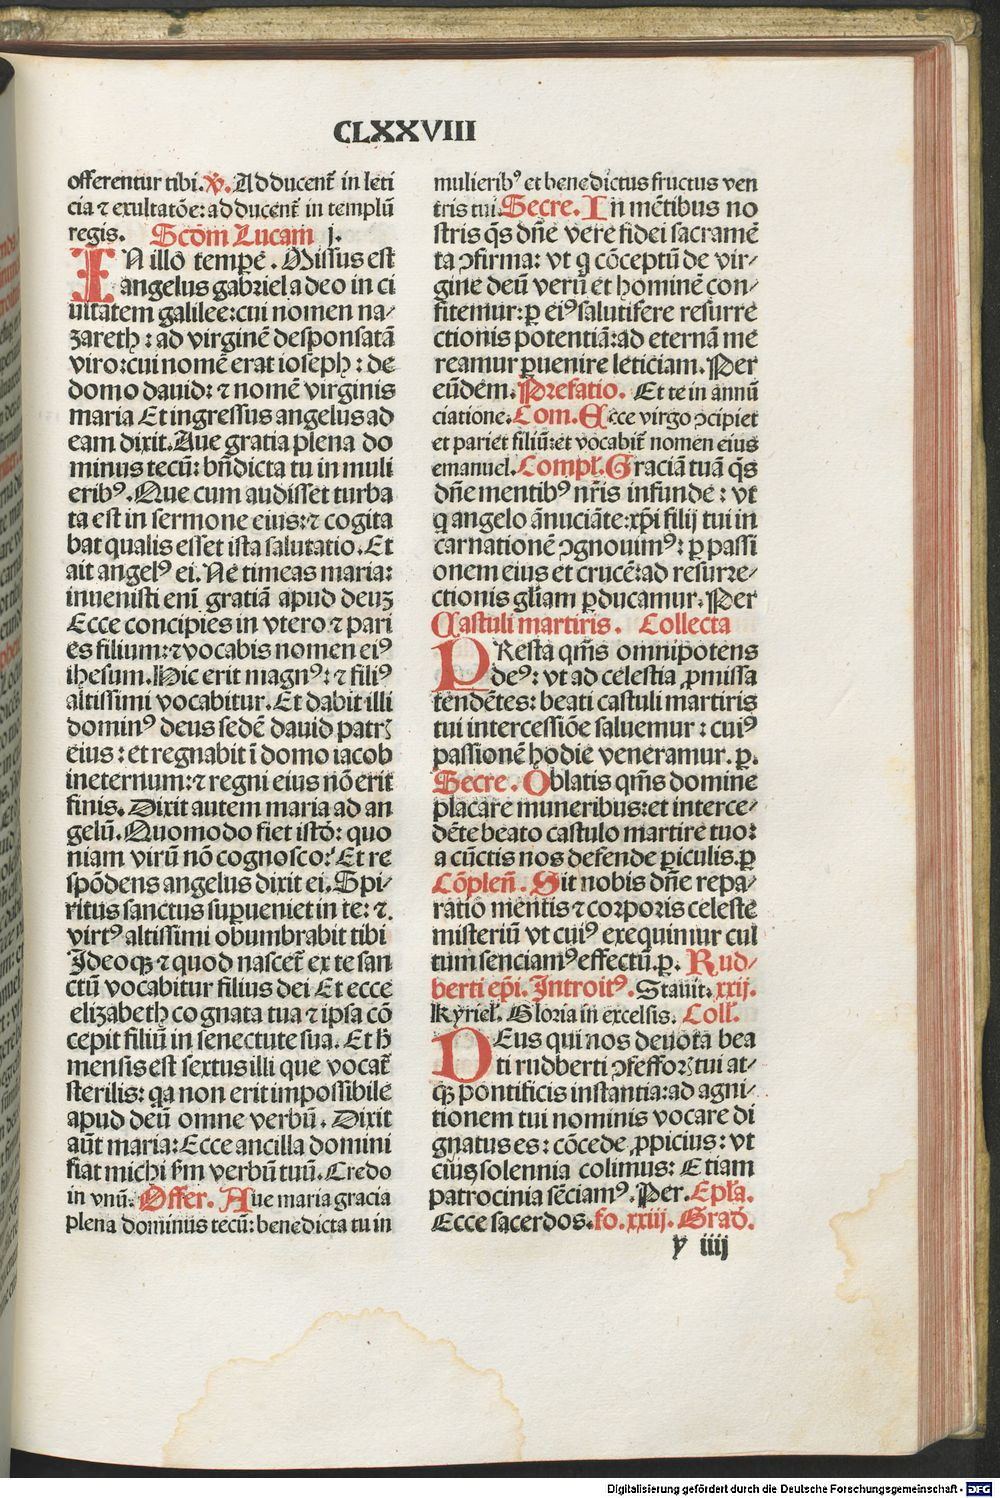 CLXXVIII
offerentur tibi. ℣. Adducent᷑ in leti
cia ⁊ exultatōe: adducent᷑ in templū
regis. Scd̄m Lucam j.
IN illo᷒ tempe᷒. Missus est
angelus gabriel a deo in ci
uitatem galilee: cui nomen na⸗
zareth : ad virginē desponsatā
viro: cui nomē erat ioseph : de
domo dauid: ⁊ nomē virginis
maria Et ingressus angelus ad
eam dixit. Aue gratia plena do
minus tecū: bn̄dicta tu in muli
eribꝰ. Que cum audisset turba
ta est in sermone eius: ⁊ cogita
bat qualis esset ista salutatio. Et
ait angelꝰ ei. Ne timeas maria:
inuenisti enī gratiā apud deuʒ
Ecce concipies in vtero ⁊ pari
es filium: ⁊ vocabis nomen eiꝰ
ihesum. Hic erit magnꝰ: ⁊ filiꝰ
altissimi vocabitur. Et dabit illi
dominꝰ deus sedē dauid patrꝭ
eius : et regnabit ī domo iacob
ineternum: ⁊ regni eius nō erit
finis. Dixit autem maria ad an
gelū. Quomodo fiet istd̄: quo
niam virū nō cognosco: Et re
spōdens angelus dixit ei. Spi⸗
ritus sanctus suꝑueniet in te: ⁊
virtꝰ altissimi obumbrabit tibi
Ideoqꝫ ⁊ quod nascet᷑ ex te san
ctū vocabitur filius dei Et ecce
elizabeth cognata tua ⁊ ipsa cō
cepit filiū in senectute sua. Et h̄
mensis est sextus illi que vocat᷑
sterilis: qa non erit impossibile
apud deū omne verbū. Dixit
aūt maria: Ecce ancilla domini
fiat michi sm̄ verbū tuū. Credo
in vnū. Offer. Aue maria gracia
plena dominus tecū: benedicta tu in
mulieribꝰ et benedictus fructus ven
tris tui. Secre. In mētibus no
stris q̄s dn̄e vere fidei sacramē
ta ↄfirma: vt q̇ cōceptū de vir⸗
gine deū verū et hominē con⸗
fitemur: ꝑ eiꝰ salutifere resurre
ctionis potentiā: ad eternā me
reamur ꝑuenire leticiam. Per
eūdem. Prefatio. Et te in annū
ciatione. Com. Ecce virgo ↄcipiet
et pariet filiū: et vocabit᷑ nomen eius
emanuel. Compl̄. Graciā tuā q̄s
dn̄e mentibꝰ nr̄is infunde : vt
q̇ angelo ānūciāte: xp̄i filij tui in
carnationē ↄgnouimꝰ: ꝑ passi
onem eius et crucē: ad resurre⸗
ctionis gl̄iam ꝑducamur. Per
Castuli martiris. Collecta
PResta qm̄s omnipotens
deꝰ: vt ad celestia ꝓmissa
tendētes: beati castuli martiris
tui intercessiōe saluemur : cuiꝰ
passionē hodie veneramur. ꝑ.
Secre. Oblatis qm̄s domine
placare muneribus: et interce⸗
dēte beato castulo martire tuo:
a cūctis nos defende ꝑiculis. ꝑ
Cōplen̄. Sit nobis dn̄e repa⸗
ratio mentis ⁊ corporis celeste
misteriū vt cuiꝰ exequimur cul
tum senciamꝰ effectū. ꝑ. Rud⸗
berti ep̄i. Introitꝰ. Statuit. xxij.
Kyriel̄. Gloria in excelsis. Coll̄.
DEus qui nos deuota bea
ti rudberti ↄfessorꝭ tui at⸗
qꝫ pontificis instantia: ad agni⸗
tionem tui nominis vocare di
gnatus es : cōcede ꝓpicius: vt
cuiꝰ solennia colimus: Etiam
patrocinia sēciamꝰ. Per. Epl̄a.
Ecce sacerdos. fo. xxiij. Grad̄.
y iiij
Digitalisierung gefördert durch die Deutsche Forschungsgemeinschaft - DFG